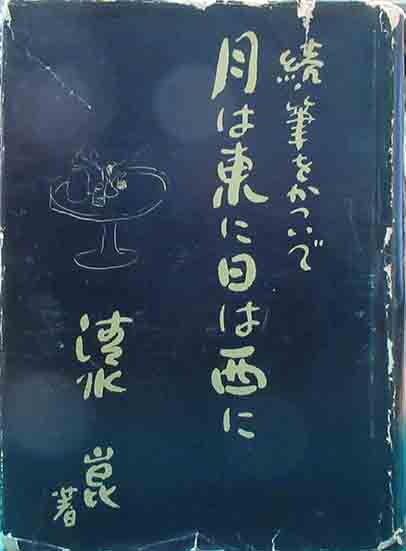 続・筆をかついで
月は東に日は西に
清水崑
著